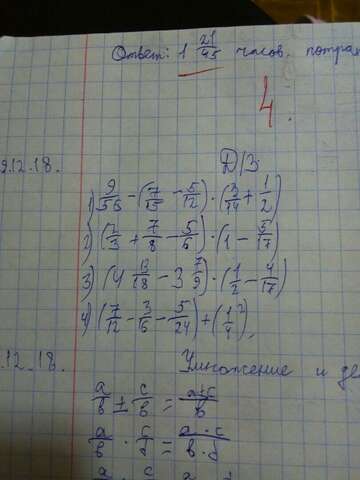 Ответ: 1 21/45 часов.
4.
9.12.18. Д/З
1) 9/56 - (7/15 - 5/12) · (3/14 + 1/2)
2) (2/3 + 7/8 - 5/6) · (1 - 5/17)
3) (4 13/18 - 3 7/9) · (1/2 - 4/17)
4) (7/12 - 3/6 - 5/24) + (1/4)²,
.12.18. Умножение и де
a/b ± c/b = a±c/b
a/b · c/d = a·c/b·d